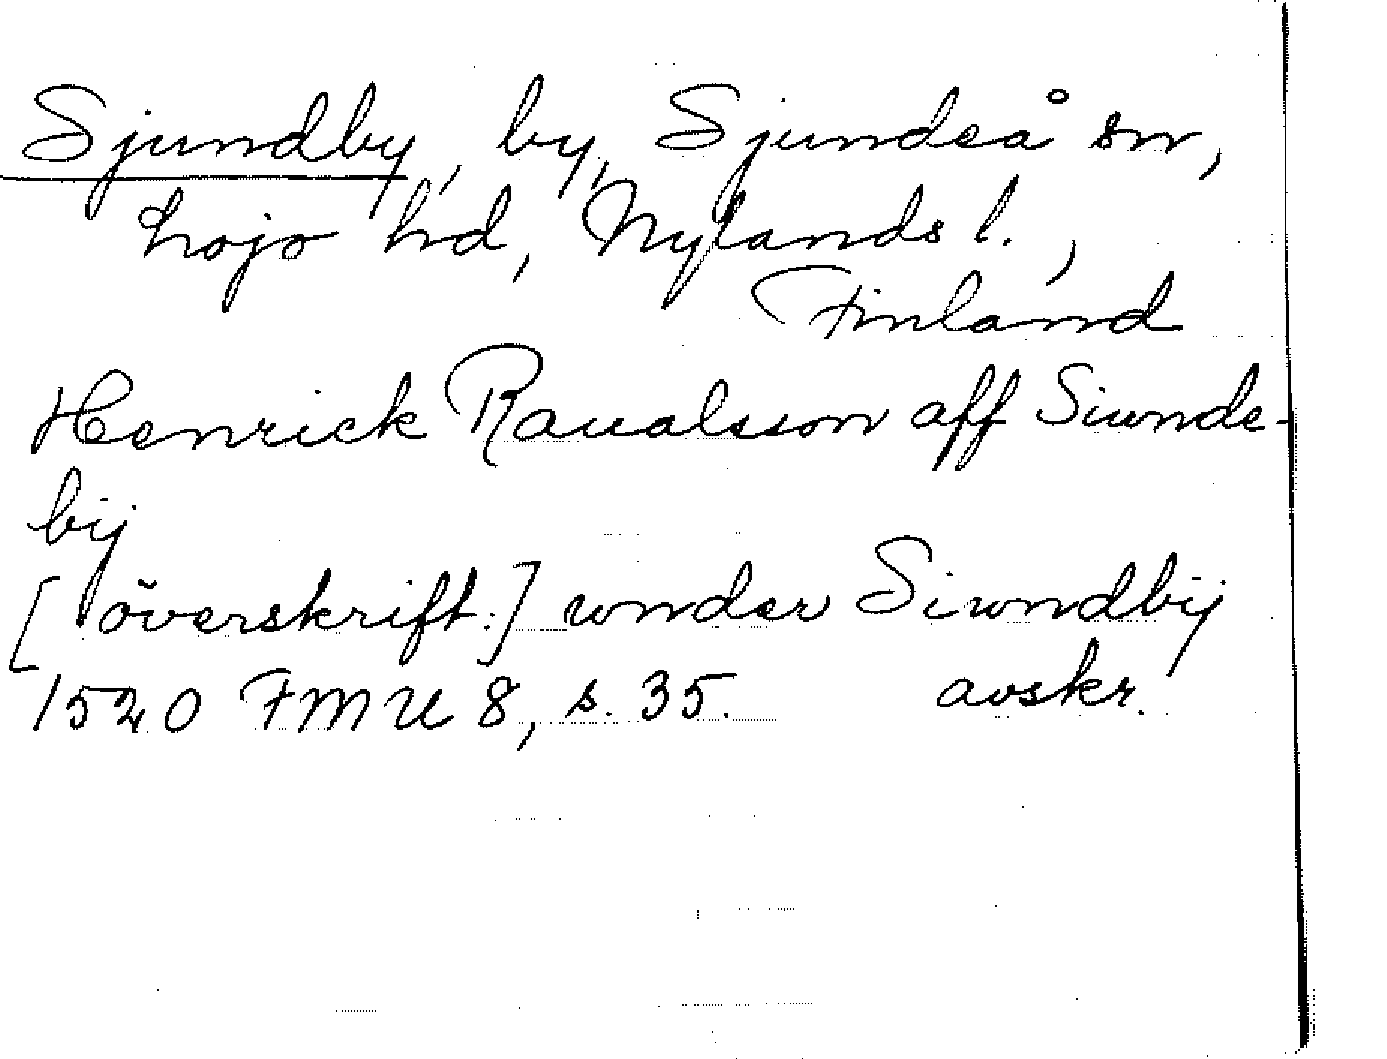 Sjundby, by, Sjundeå sn,
Lojo hd, Nylands l.,
Finland
Henrick Raualsson aff Siwnde-
bij
[överskift:] wnder Siwndbij
1520 FMU 8, s. 35. avskr.